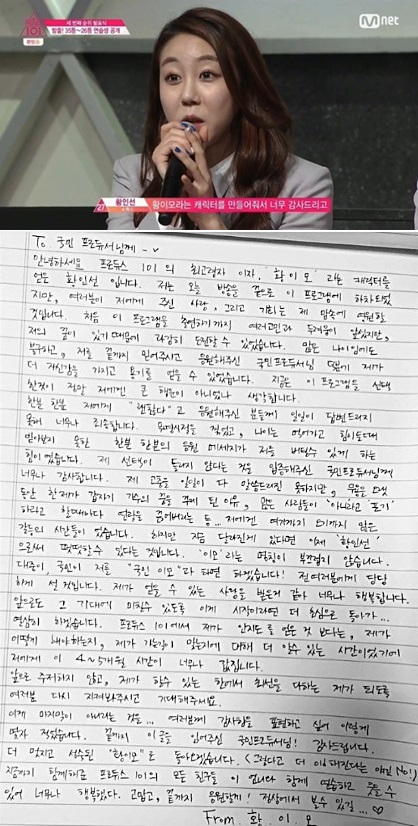 PRODUCE 101
세 번째 순위 발표식
방출! 35등~26등 연습생 공개
Mnet
27 황인선
황이모라는 캐릭터를 만들어줘서 너무 감사드리고
To. 국민 프로듀서님께
안녕하세요 프로듀스 101의 최고령자 이자, '황이모' 라는 캐릭터를
얻은 황인선 입니다. 저는 오늘 방송을 끝으로 이 프로그램에 하차되었
지만, 여러분이 저에게 주신 사랑, 그리고 기회는 제 맘속에 영원할
것입니다. 처음 이 프로그램을 출연하기까지 여러고민과 두려움이 있었지만,
저의 꿈이 있기 때문에 과감히 도전할 수 있었습니다. 많은 나이임에도
불구하고, 저를 끝까지 믿어주시고 응원해주신 국민프로듀서님 덕분에 제가
더 자신감을 가지고 용기를 얻을 수 있었습니다. 지금은 이 프로그램을 선택
한것이 정말 저에겐 큰 행운이 아니었나 생각합니다.
한분 한분 저에게 "팬이다"고 응원해주신 분들께 일일이 답변드리지
못해 너무나 죄송합니다. 나이는 먹어가고 힘이들때
한분 한분의 응원 메세지가 저를 버틸수 있게 하는
힘이 였습니다. 제 선택이 틀리지 않다는 것을 입증해주신 국민프로듀서님께
너무나 감사합니다. 제 고충을 일일이 다 말씀드리진 못하지만,
동안 한 제가 갑자기 가수의 꿈을 꾸게 된 이유, 많은 사람들이 '아니라고 포기'
하라고 할때마다 저에겐 여기까지 오기까지 많은
갈등의 시간들이 있었습니다. 하지만 지금 달라진게 있다면 이제 '황인선'
으로써 떳떳할수 있다는 것입니다. '이모'라는 명칭이 부끄럽지 않습니다.
대중이, 국민이 저를 "국민 이모"라 하면 하겠습니다! 전 여러분께 당당
하게 설 것입니다. 제가 얻을 수 있는 사랑을 받은거 같아 너무나 행복합니다.
앞으로도 그 기대에 미칠수 있도록 이게 시작이라면 더 초심으로 돌아가...
열심히 하겠습니다. 프로듀스 101에서 제가 인지도를 얻은 것 보다는, 제가
어떻게 해야하는지, 제가 가는길이 맞는지에 대해 더 알수 있는 시간이었기에
저에게 이 4~5개월 시간이 너무나 값집니다.
앞으로 주저하지 않고, 제가 할수 있는 한에서 최선을 다하는 제가 되도록
여러분 다시 지켜봐주시고 기대해주세요.
이제 마지막이 아니라는 것을... 여러분께 감사함을 표현하고 싶어 이렇게
몇자 적었습니다. 끝까지 이 글을 읽어주신 국민프로듀서님! 감사드립니다.
더 멋지고 성숙된 "황이모"로 돌아오겠습니다. (그렇다고 더 이뻐진다는 얘긴 No!)
지금까지 함께해준 프로듀스 101의 모든 친구들 이 언니가 함께 연습하고 웃을수
있어 너무나 행복했다. 고맙고, 끝까지 응원할게! 정상에서 보자 있길... ♡
From. 황 이 모